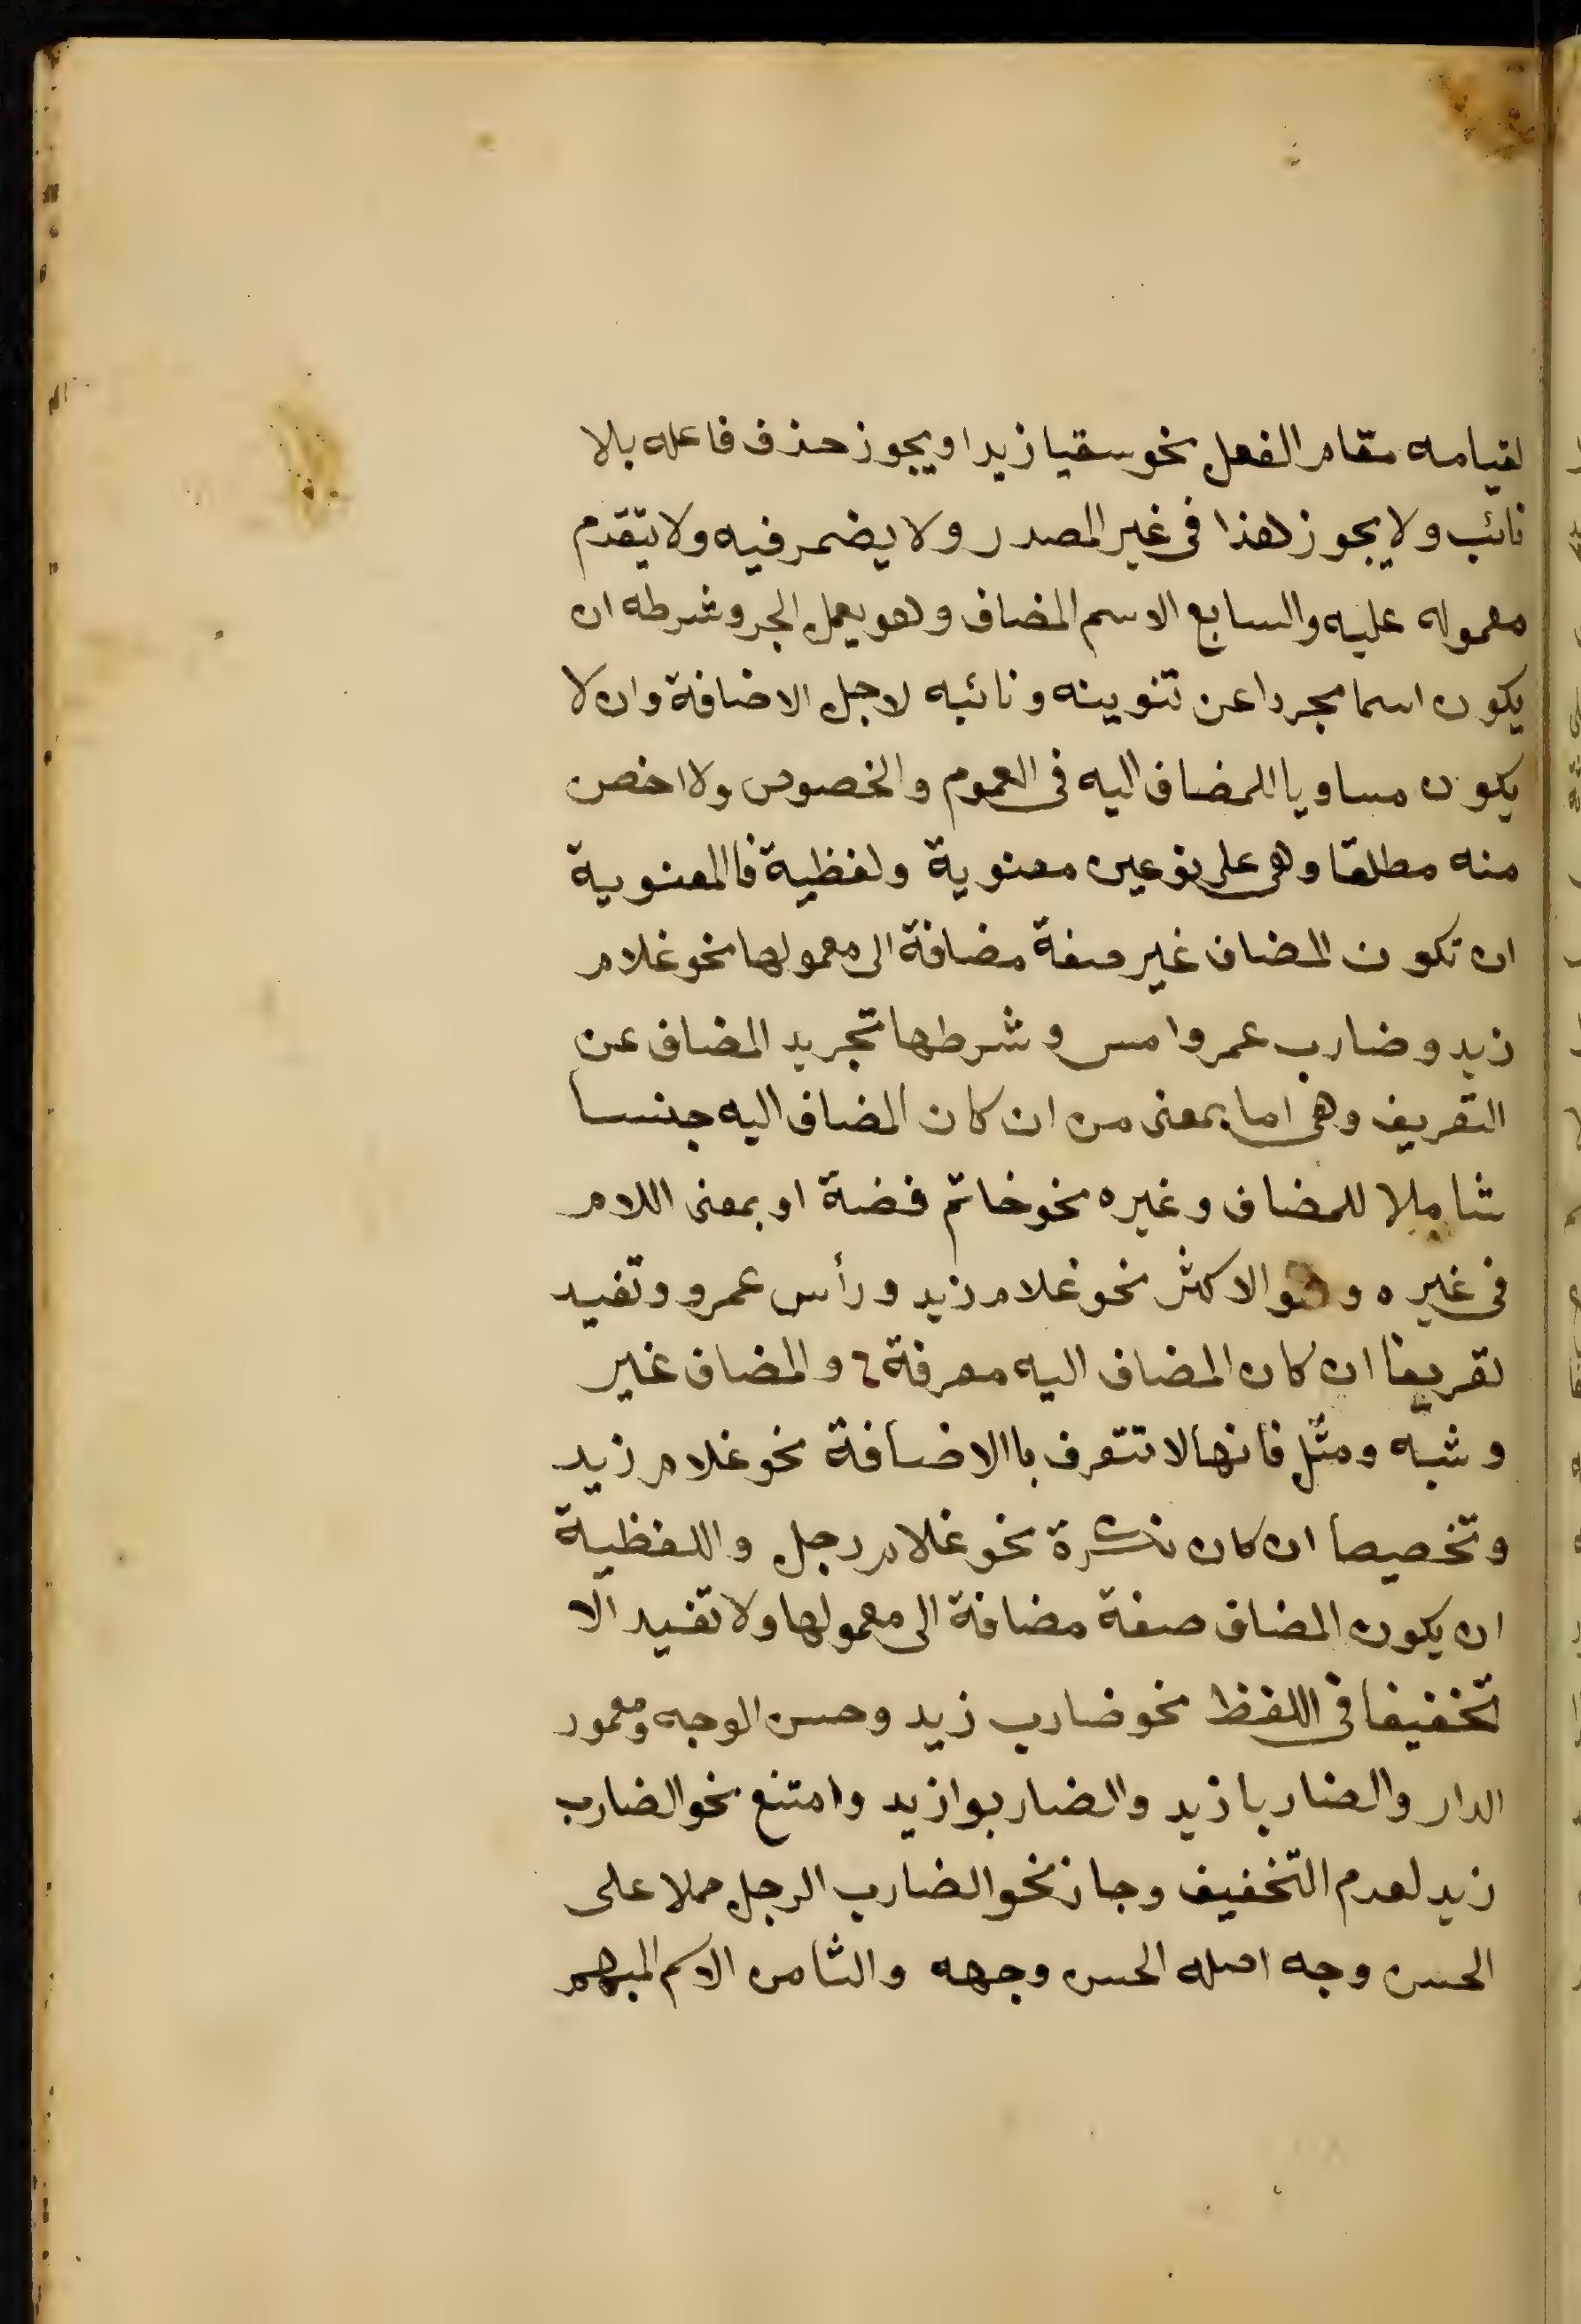 لقيامه مقام الفعل نحو سقيا زيدا ويجوز حذف فاعله بلا
نائب ولا يجوز هذا فى غير المصدر ولا يضمر فيه ولا يتقدم
معموله عليه والسابع الاسم المضاف وهو يعمل الجر وشرطه ان
يكون اسما مجردا عن تنوينه ونائبه لاجل الاضافة وان لا
يكون مساويا للمضاف اليه فى العموم والخصوص ولا اخص
منه مطلقا وهى على نوعين معنوية ولفظية فالمعنوية
ان تكون المضاف غير صفة مضافة الى معمولها نحو غلام
زيد وضارب عمرو امس وشرطها تجريد المضاف عن
التعريف وهى اما بمعنى من ان كان المضاف اليه جنسا
شاملا للمضاف وغيره نحو خاتم فضة او بمعنى اللام
فى غيره وهو الاكثر نحو غلام زيد ورأس عمرو وتفيد
تعريفا ان كان المضاف اليه معرفة والمضاف غير
وشبه ومثل فانها لا تتعرف باالاضافة نحو غلام زيد
وتخصيصا ان كان نكرة نحو غلام رجل واللفظية
ان يكون المضاف صفة مضافة الى معمولها ولا تفيد الا
تخفيفا فى اللفظ نحو ضارب زيد وحسن الوجه ومعمور
الدار والضاربا زيد والضاربوا زيد وامتنع نحو الضارب
زيد لعدم التخفيف وجاز نحو الضارب الرجل حملا على
الحسن وجه اصله الحسن وجهه والثامن الاسم المبهم